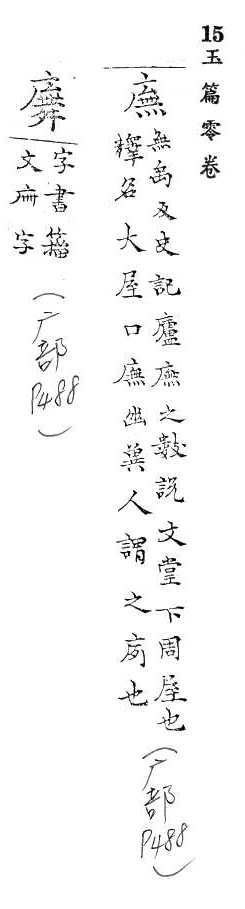 15玉篇零卷
廡
無禹反史記廬廡之數說文堂下周屋也
釋名大屋曰廡幽冀人謂之庌也
(广部P488)
字書籀
文字
(广部P488)